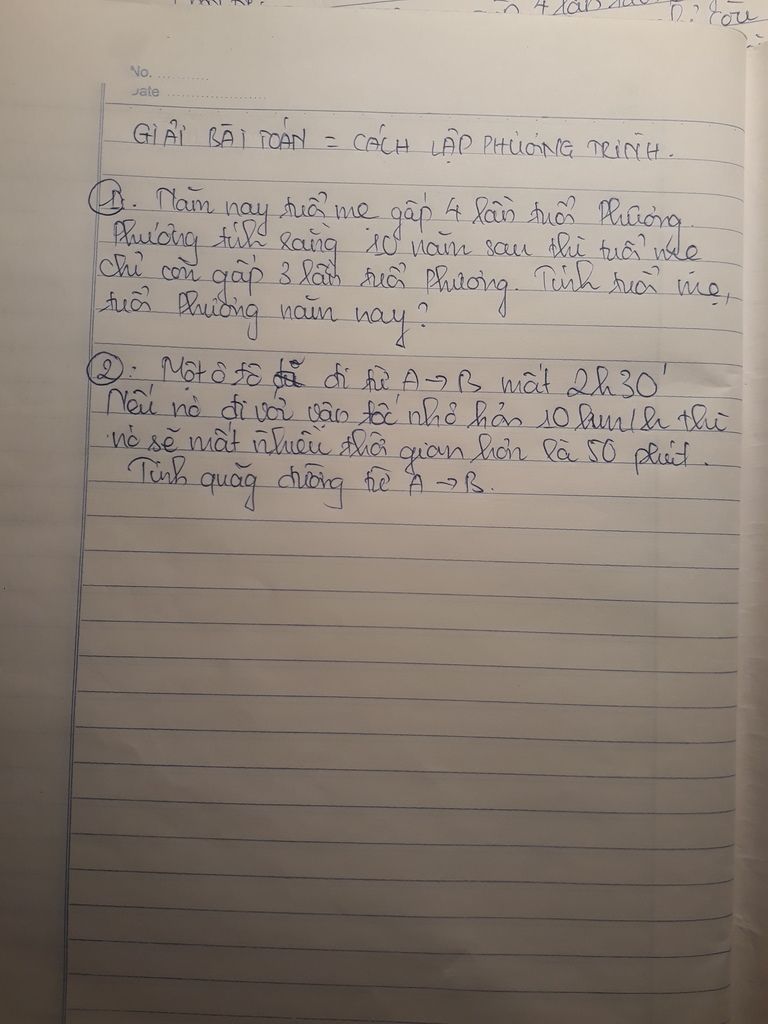 4 lần
No. ..........
Date ....................
GIẢI BÀI TOÁN = CÁCH LẬP PHƯƠNG TRÌNH.
1. Năm nay tuổi mẹ gấp 4 lần tuổi Phương.
Phương tính rằng 10 năm sau thì tuổi mẹ
chỉ còn gấp 3 lần tuổi Phương. Tính tuổi mẹ,
tuổi Phương năm nay?
2. Một ô tô đi từ A → B mất 2h30'
Nếu nó đi với vận tốc nhỏ hơn 10 km/h thì
nó sẽ mất nhiều thời gian hơn là 50 phút.
Tính quãg đường từ A → B.